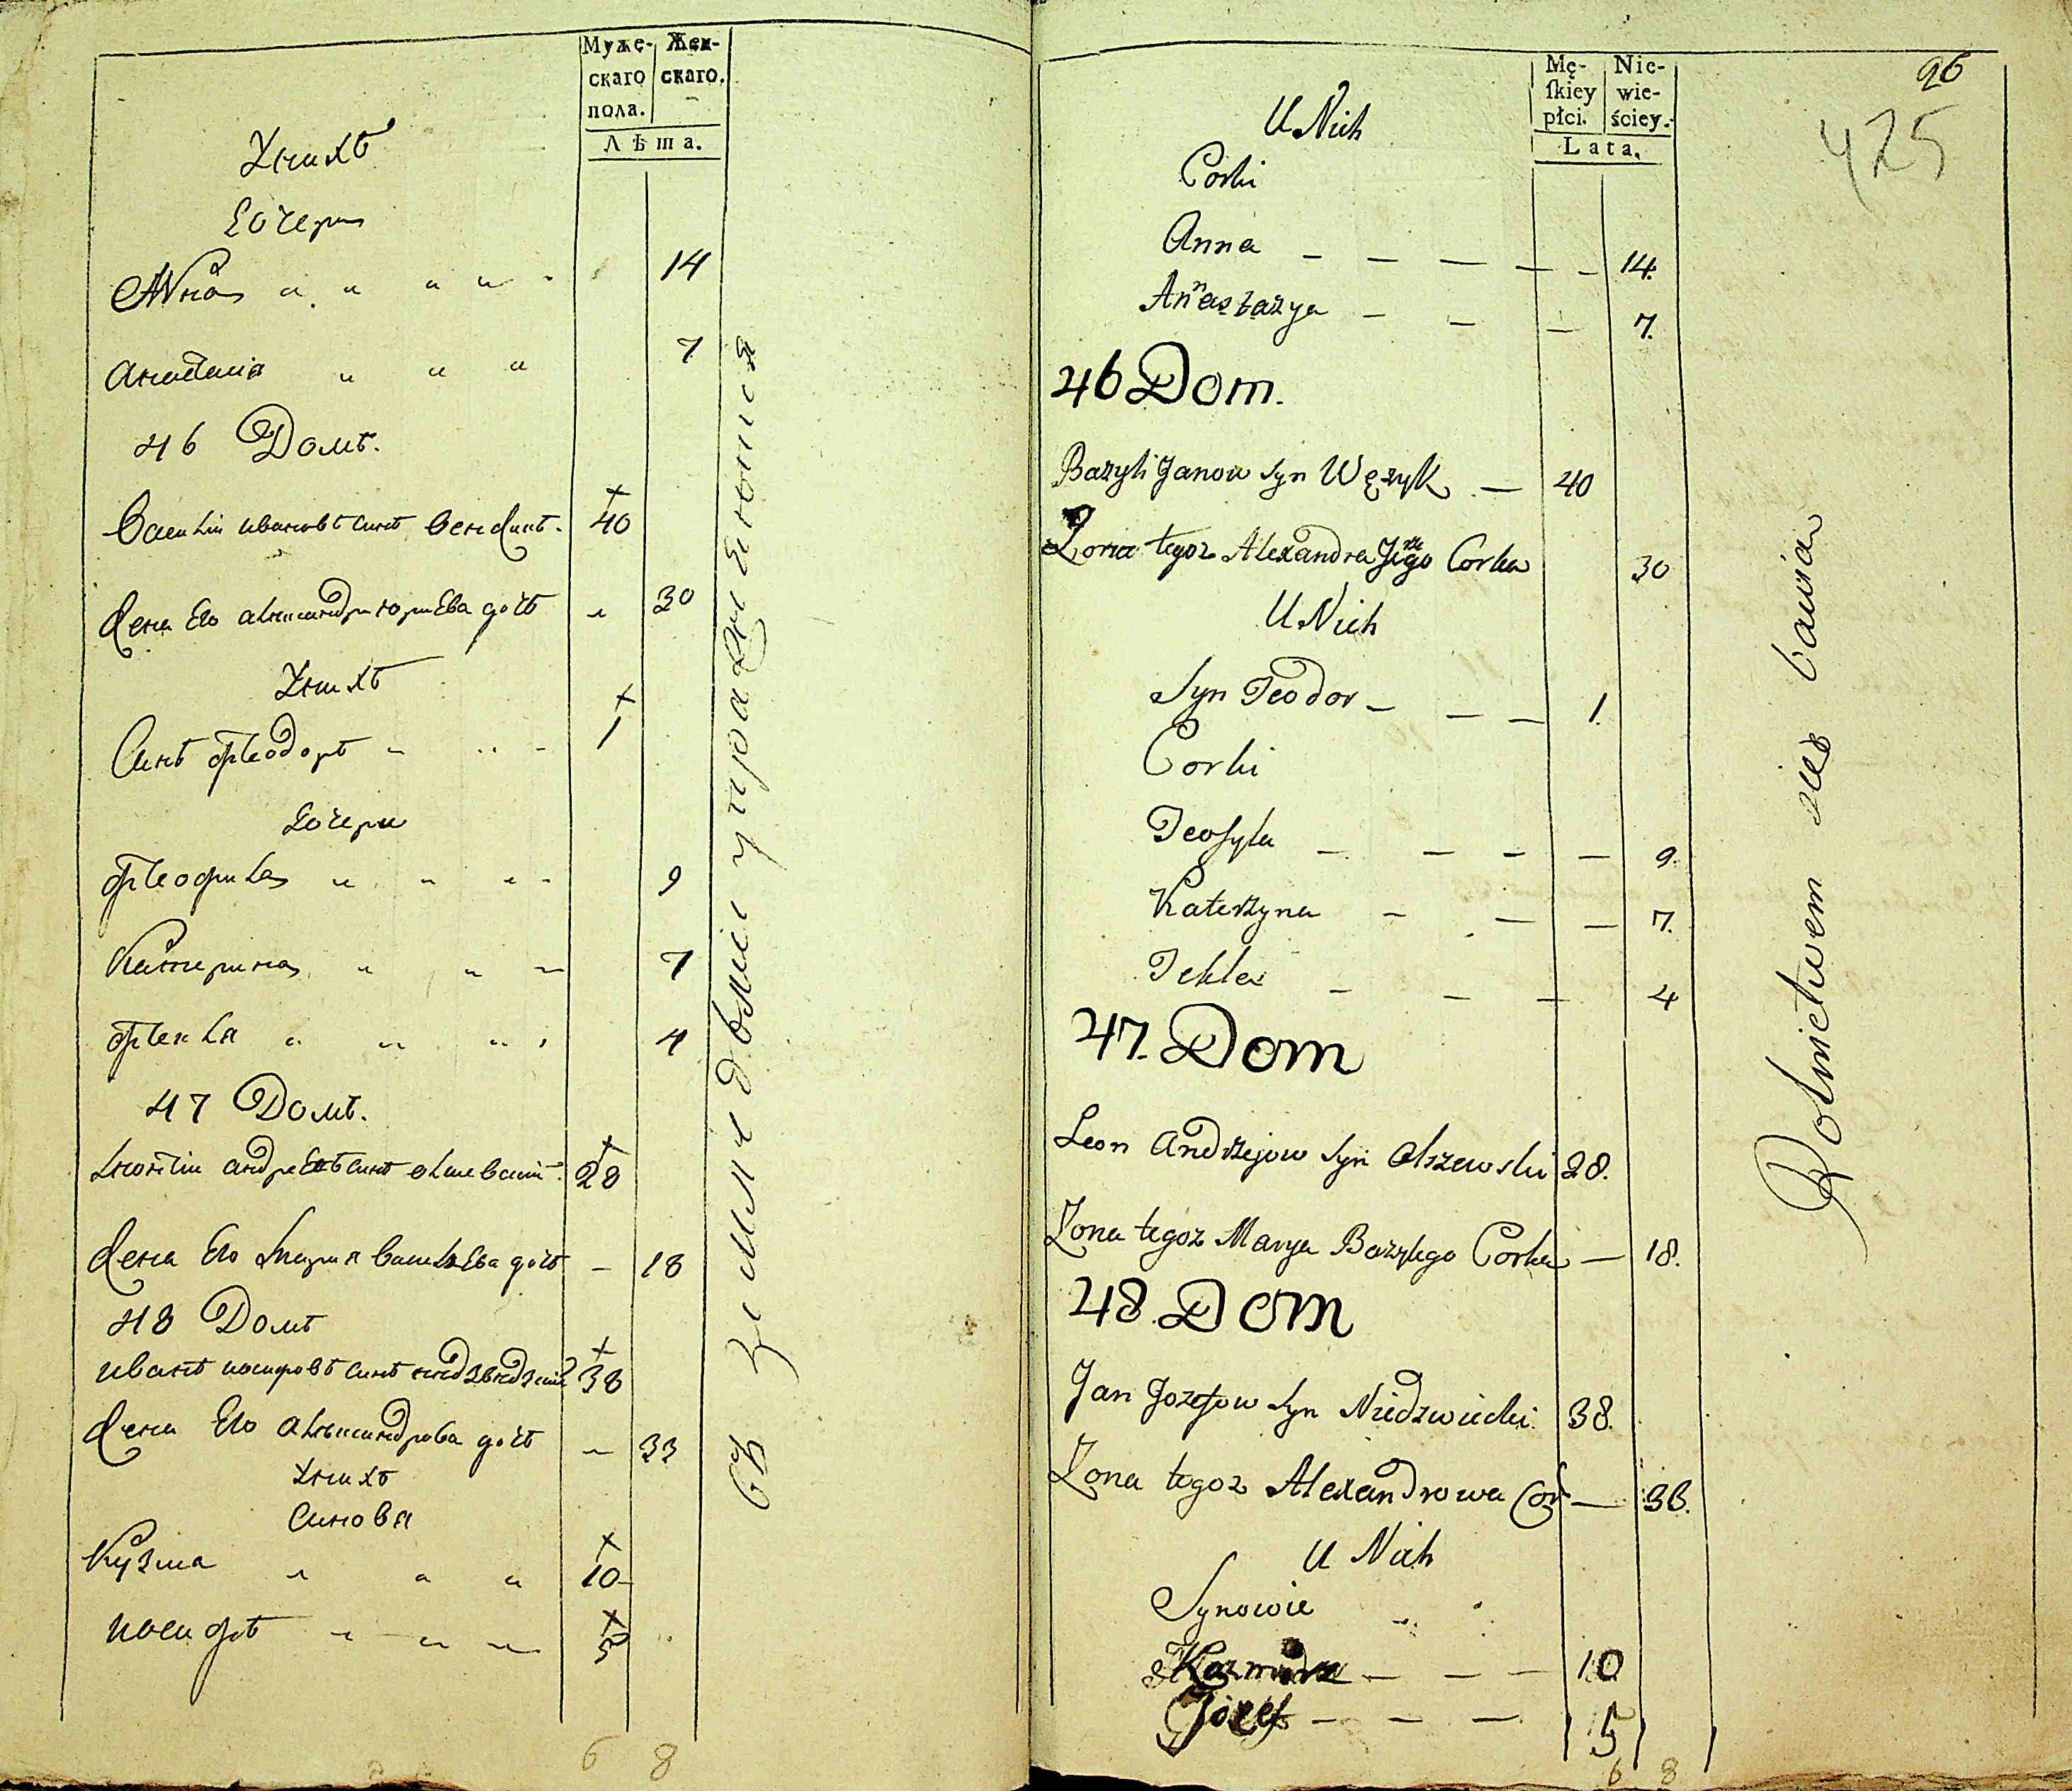 Муже- Жен-
скаго скаго.
пола.
Лѣта.
У нихъ
Дочери
Анна 14
Анастасiя 7
46 Домъ.
Василiй ивановъ синъ венжикъ. 40
Жена Его александра юрiева дочь 30
У нихъ
Синъ Феодоръ 1
Дочери
Феофила 9
Катерина 7
Фекла 4
47 Домъ.
андреевъ синъ олшевскiй 28
Жена Его Марiя василева дочь 18
48 Домъ
иванъ иосифовъ синъ недзведзкiй 38
Жена Его александрова дочь 33
У нихъ
Синовя
Кузма 10
иосифъ 5
6 8
въ земледѣлiи упражняются
96
425
Mę- Nie-
skiey wie-
płci. ściey.
Lata.
U Nich
Corki
Anna 14.
Anastazya 7.
46 Dom.
Bazyli Janow syn Wężyk 40
Zona tegoz Alexandra Jego Corka 30
U Nich
Syn Teodor 1.
Corki
Teofyla 9.
Katerzyna 7.
Tekla 4
47. Dom
Leon Andrzejow syn Olszewski 28.
Zona tegoz Marya Bazylego Corka 18.
48. Dom
Jan Jozefow syn Niedzwiecki 38.
Zona tegoz Alexandrowa Cor 33.
U Nich
Synowie
Kazmierz 10
Jozef 5
6 8
Rolnictwem się bawią